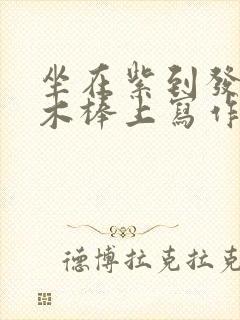 坐在紫到發
木棒上寫作
德博拉克拉克